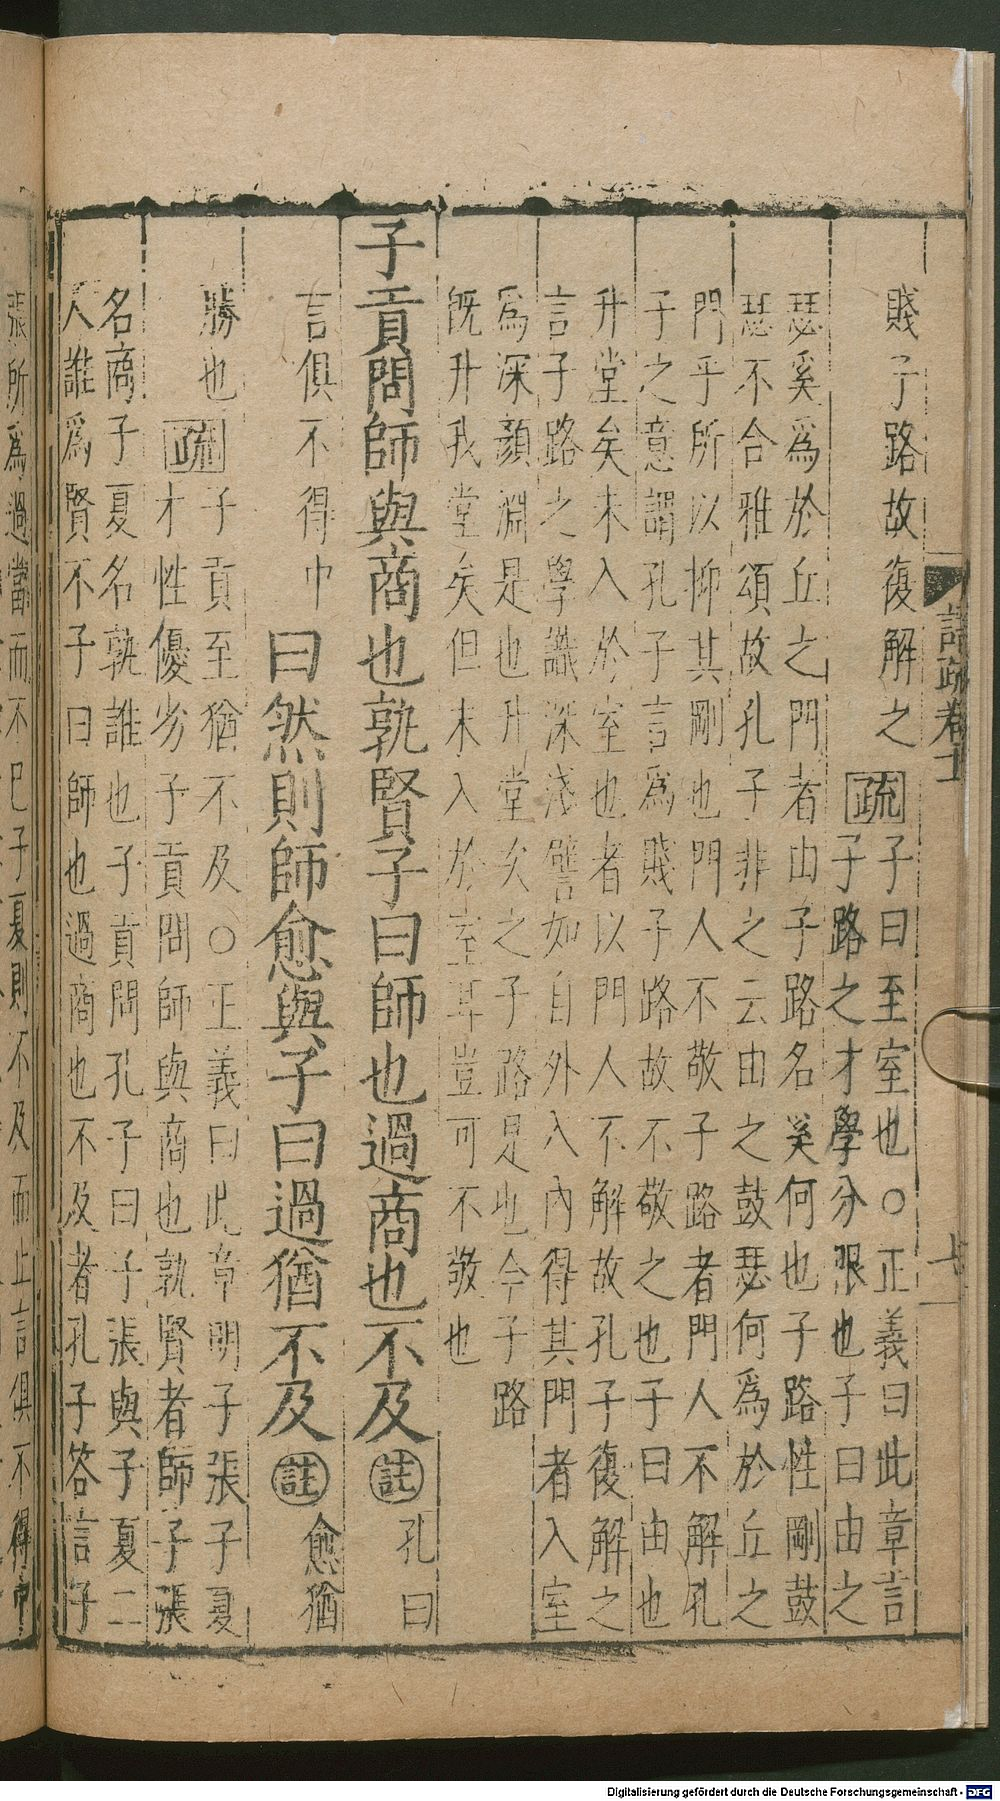 賤子路故復解之
疏
子曰至室也○正義曰此章言
子路之才學分限也子曰由之
瑟奚爲於丘之門者由子路名奚何也子路性剛鼓
瑟不合雅頌故孔子非之云由之鼓瑟何爲於丘之
門乎所以抑其剛也門人不敬子路者門人不解孔
子之意謂孔子言爲賤子路故不敬之也子曰由也
升堂矣未入於室也者以門人不解故孔子復解之
言子路之學識深淺譬如自外入內得其門者入室
爲深顏淵是也升堂次之子路是也今子路
既升我堂矣但未入於室耳豈可不敬也
子貢問師與商也孰賢子曰師也過商也不及
註
孔曰
言俱不得中
曰然則師愈與子曰過猶不及
註
愈猶
勝也
疏
子貢至猶不及○正義曰此章明子張子夏
才性優劣子貢問師與商也孰賢者師子張
名商子夏名孰誰也子貢問孔子曰子張與子夏二
人誰爲賢不子曰師也過商也不及者孔子答言子
張所爲過當而不已子夏則不及而止言俱不得中
疏卷十
Digitalisierung gefördert durch die Deutsche Forschungsgemeinschaft - DFG